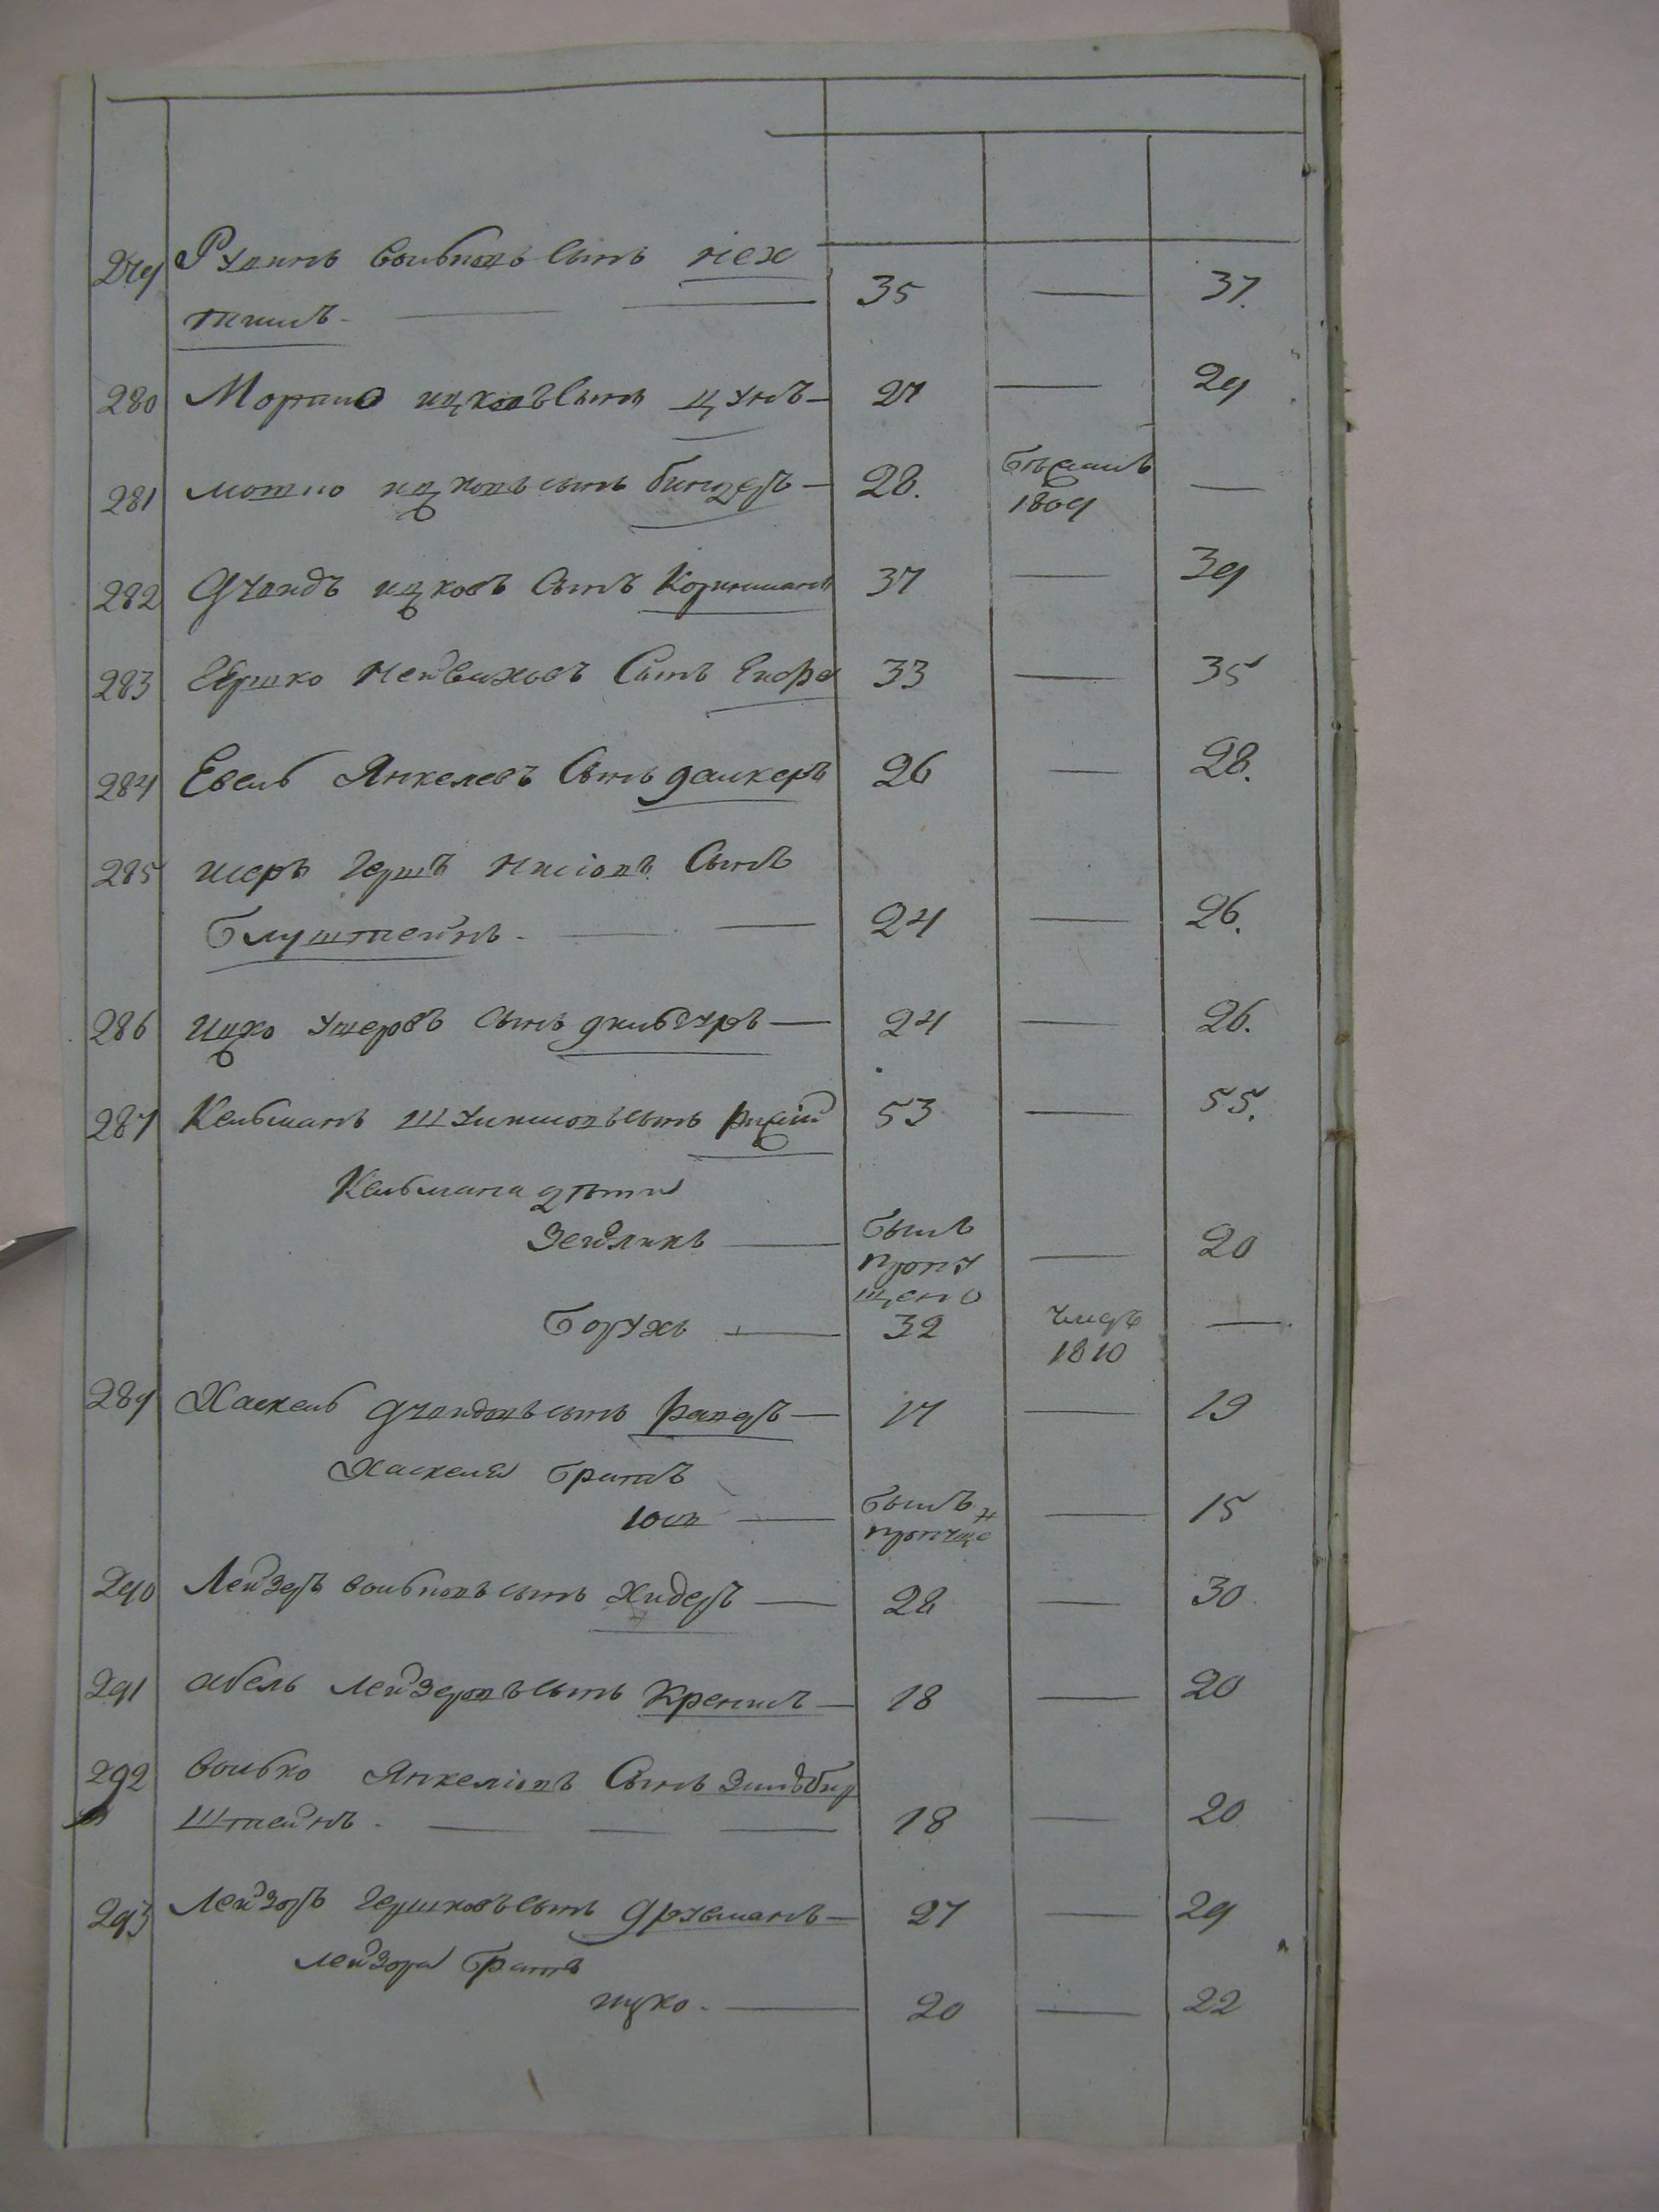 279 Рувинъ Волковъ Сынъ Нех 35 — 37.
тман.
280 Мортко ицковъ Сынъ цунъ 27 — 29
281 мошко ицковъ сынъ биндеръ 28. бежалъ 1809 —
282 Дувидъ ицковъ Сынъ Коринманъ 37 — 39
283 Гершко Нейваховъ Сынъ 33 — 35
284 Евель Янкелевъ Сынъ 26 — 28.
285 Шеръ Гершъ Нисіовъ Сынъ
Блуштейнъ. 24 — 26.
286 Ицко Ушеровъ Сынъ 24 — 26.
287 Кельманъ Шулимовъ сынъ рижій 53 — 55.
Кельмана дѣти
Зейликъ былъ пропущено — 20
Борухъ — 32 умеръ 1810 —
289 Хаскель Дувидовъ сынъ 17 — 19
Хаскеля братъ
Іось былъ пропуще н — 15
290 Лейзеръ волковъ сынъ Хидеръ 28 — 30
291 абель Лейзеровъ сынъ 18 — 20
292 Волько Янкеліовъ Сынъ
Штейнъ. 18 — 20
293 Лейзоръ Гершковъ сынъ 27 — 29
Лейзора братъ
ицко. — 20 — 22